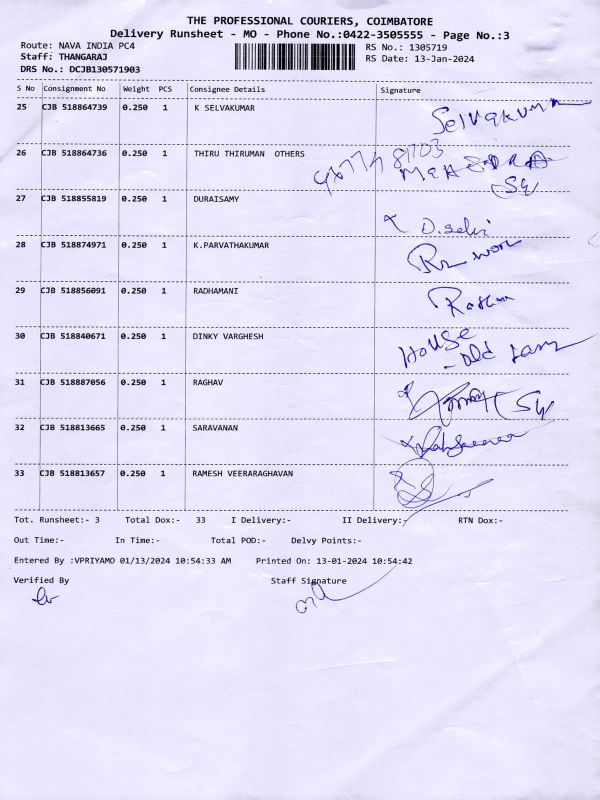 THE PROFESSIONAL COURIERS, COIMBATORE
Delivery Runsheet - MO - Phone No.:0422-3505555 - Page No.:3
Route: NAVA INDIA PC4 RS No.: 1305719
Staff: THANGARAJ RS Date: 13-Jan-2024
DRS No.: DCJB130571903
S No Consignment No Weight PCS Consignee Details Signature
25 CJB 518864739 0.250 1 K SELVAKUMAR Selvakumar
26 CJB 518864736 0.250 1 THIRU THIRUMAN OTHERS
27 CJB 518855819 0.250 1 DURAISAMY D. selvi
28 CJB 518874971 0.250 1 K.PARVATHAKUMAR
29 CJB 518856091 0.250 1 RADHAMANI
30 CJB 518840671 0.250 1 DINKY VARGHESH House
31 CJB 518887056 0.250 1 RAGHAV
32 CJB 518813665 0.250 1 SARAVANAN
33 CJB 518813657 0.250 1 RAMESH VEERARAGHAVAN
Tot. Runsheet:- 3 Total Dox:- 33 I Delivery:- II Delivery:- RTN Dox:-
Out Time:- In Time:- Total POD:- Delvy Points:-
Entered By :VPRIYAMO 01/13/2024 10:54:33 AM Printed On: 13-01-2024 10:54:42
Verified By Staff Signature